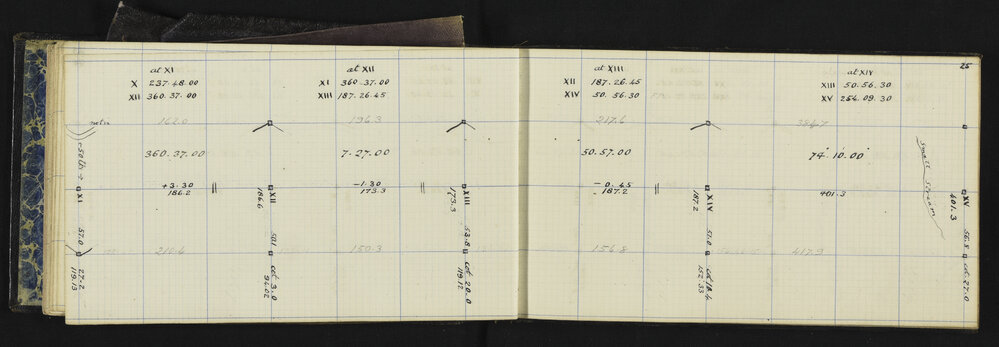 25
at XI
X 237.48.00
XII 360.37.00
at XII
XI 360.37.00
XIII 187.26.45
at XIII
XII 187.26.45
XIV 50.56.30
at XIV
XIII 50.56.30
XV 254.09.30
162.0
196.3
217.6
360.37.00
7.27.00
50.57.00
74.10.00
small stream
+3.30
186.2
-1.30
173.3
-0.45
187.2
401.3
XI
57.0
27.2
119.13
XII
186.6
501
cot 3.0
94.02
XIII
173.3
53.8
cot 20.0
119.12
XIV
187.2
51.0
cot 18.4
152.33
XV
401.3
56.8
cot 27.0
210.6
150.3
156.8
417.9